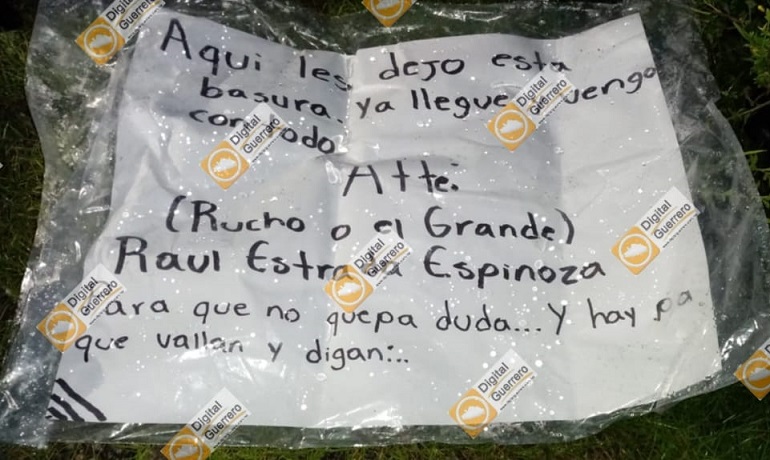 Aqui les dejo esta
basura. ya llegue vengo
con todo
Atte:
(Rucho o el Grande)
Raul Estrada Espinoza
para que no quepa duda... Y hay pa
que vallan y digan...
Digital Guerrero
Digital Guerrero
Digital Guerrero
Digital Guerrero
Digital Guerrero
Digital Guerrero
Digital Guerrero
Digital Guerrero